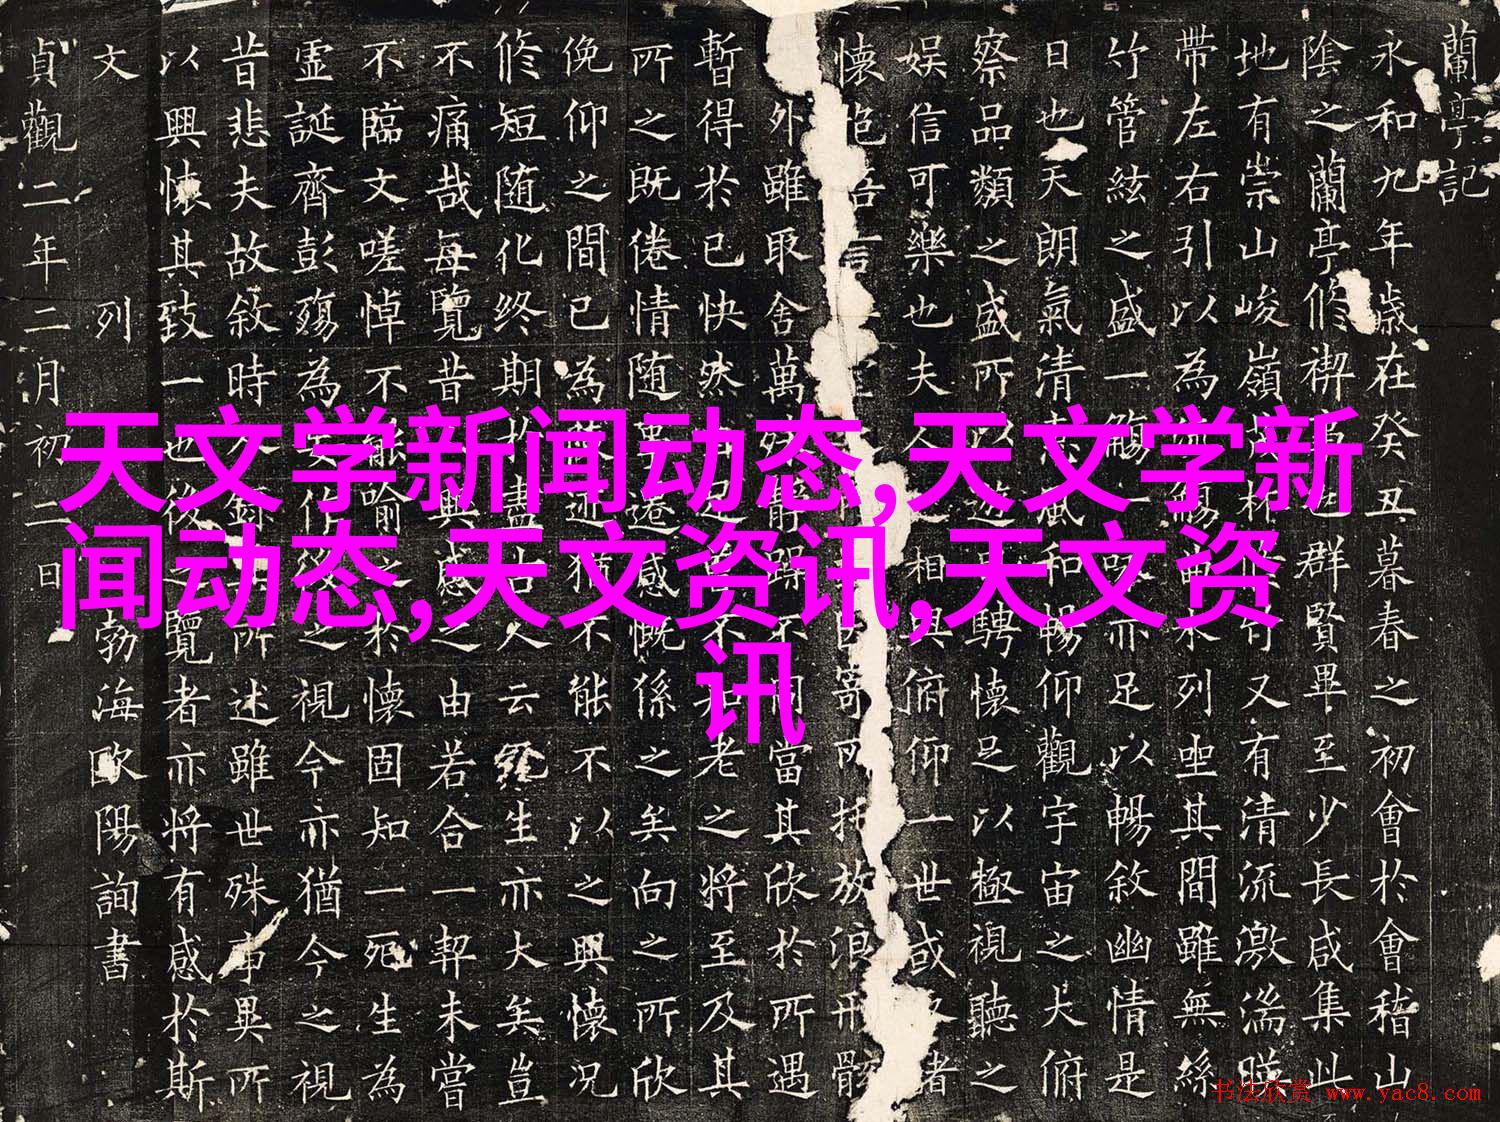 蘭亭記
永和九年歲在癸丑暮春之初會於會稽山
陰之蘭亭修禊也群賢畢至少長咸集此
地有崇山峻嶺林又有清流激湍暎
帶左右引以為觴曲水列坐其間雖無絲
竹管絃之盛一觴一詠亦足以暢敘幽情是
日也天朗氣清惠風和暢仰觀宇宙之大俯
察品類之盛所以遊目騁懷足以極視聽之
娛信可樂也夫人之相與俯仰一世或諸
懷抱言寄所托放浪形骸
外雖取舍萬殊靜躁不同當其欣於所遇
暫得於已快然不知老之將至及其
所之既倦情随遷感慨係之矣向之所欣
俛仰之間已為陳迹猶不能不以之興懷況
修短随化終期於盡古人云死生亦大矣豈
不痛哉每覽昔興感之由若合一契未嘗
不臨文嗟悼不能喻之於懷固知一死生為
虛誕齊彭殤為妄作後之視今亦猶今之視
昔悲夫故敘時人錄其所述雖世殊事異所
以興懷其致一也後之覽者亦將有感於斯
文列勃海歐陽詢書
貞觀二年二月初二日
天文学新闻动态,天文学新
闻动态,天文资讯,天文资
讯
书法欣赏 www.yac8.com